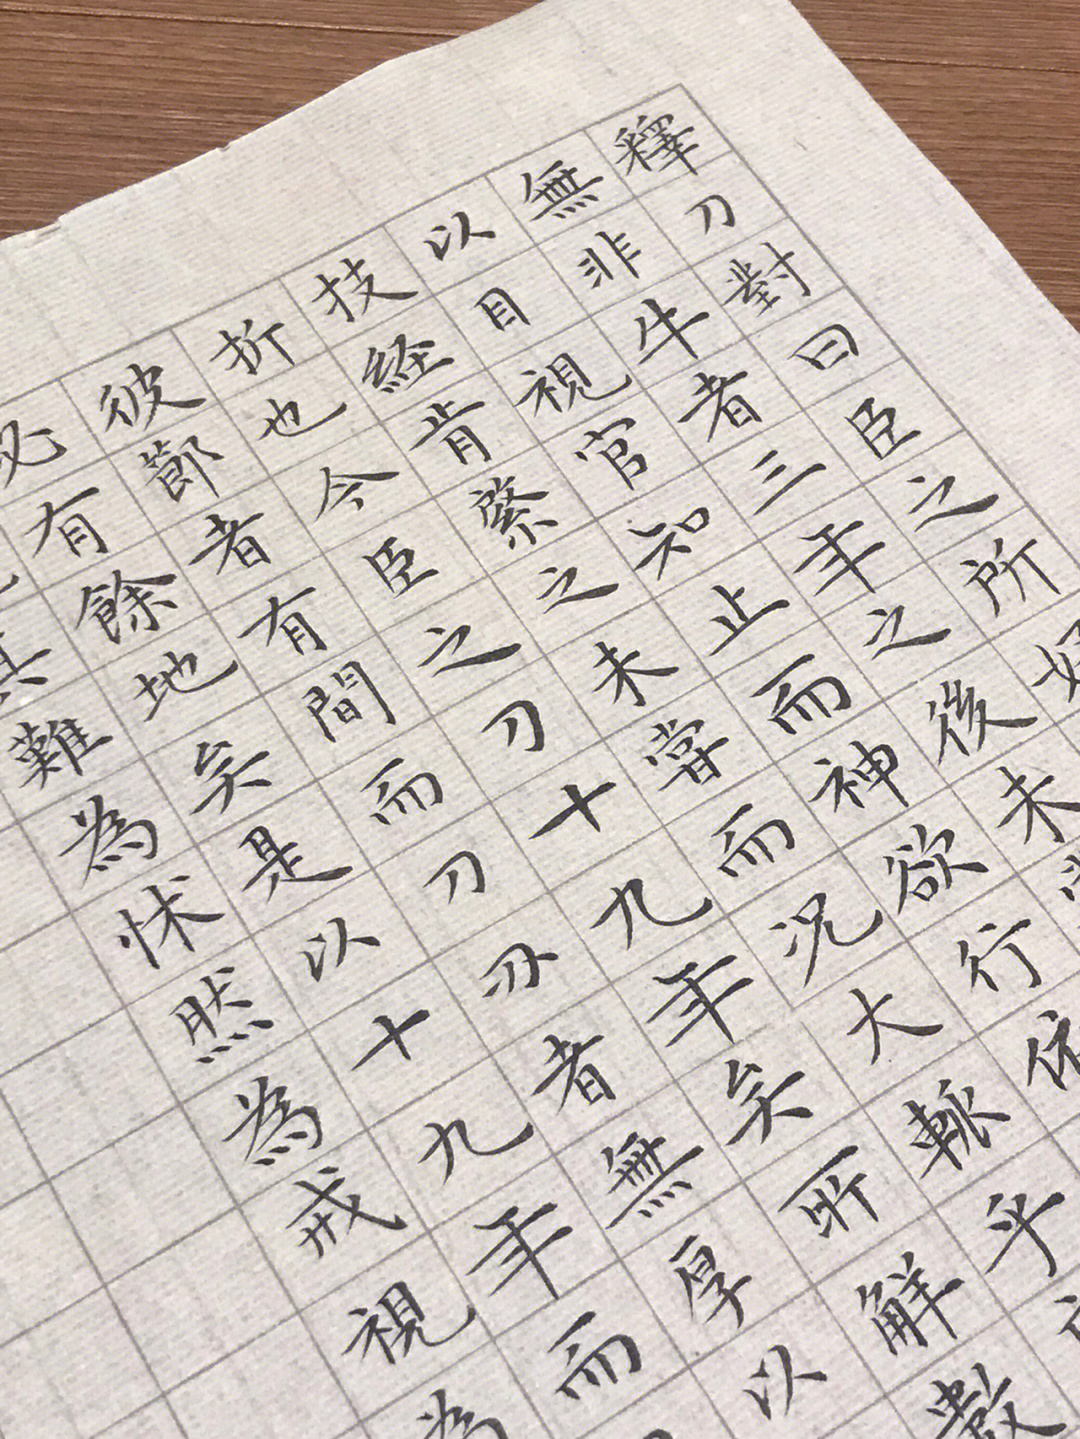 釋刀對曰臣之所好
無非牛者三年之後未嘗
以目視官知止而神欲行依
技経肯綮之未嘗而況大軱乎
折也今臣之刀十九年矣所解數
彼節者有間而刀刃者無厚以
必有餘地矣是以十九年而
其難為怵然為戒視為